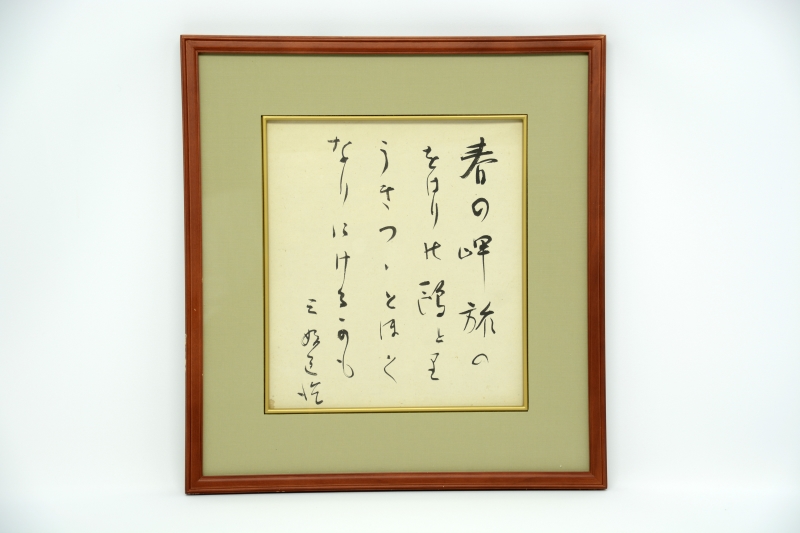 春の岬旅の
をはりの鷗と里
うきつゝとほく
なりにけるかも
三好達治